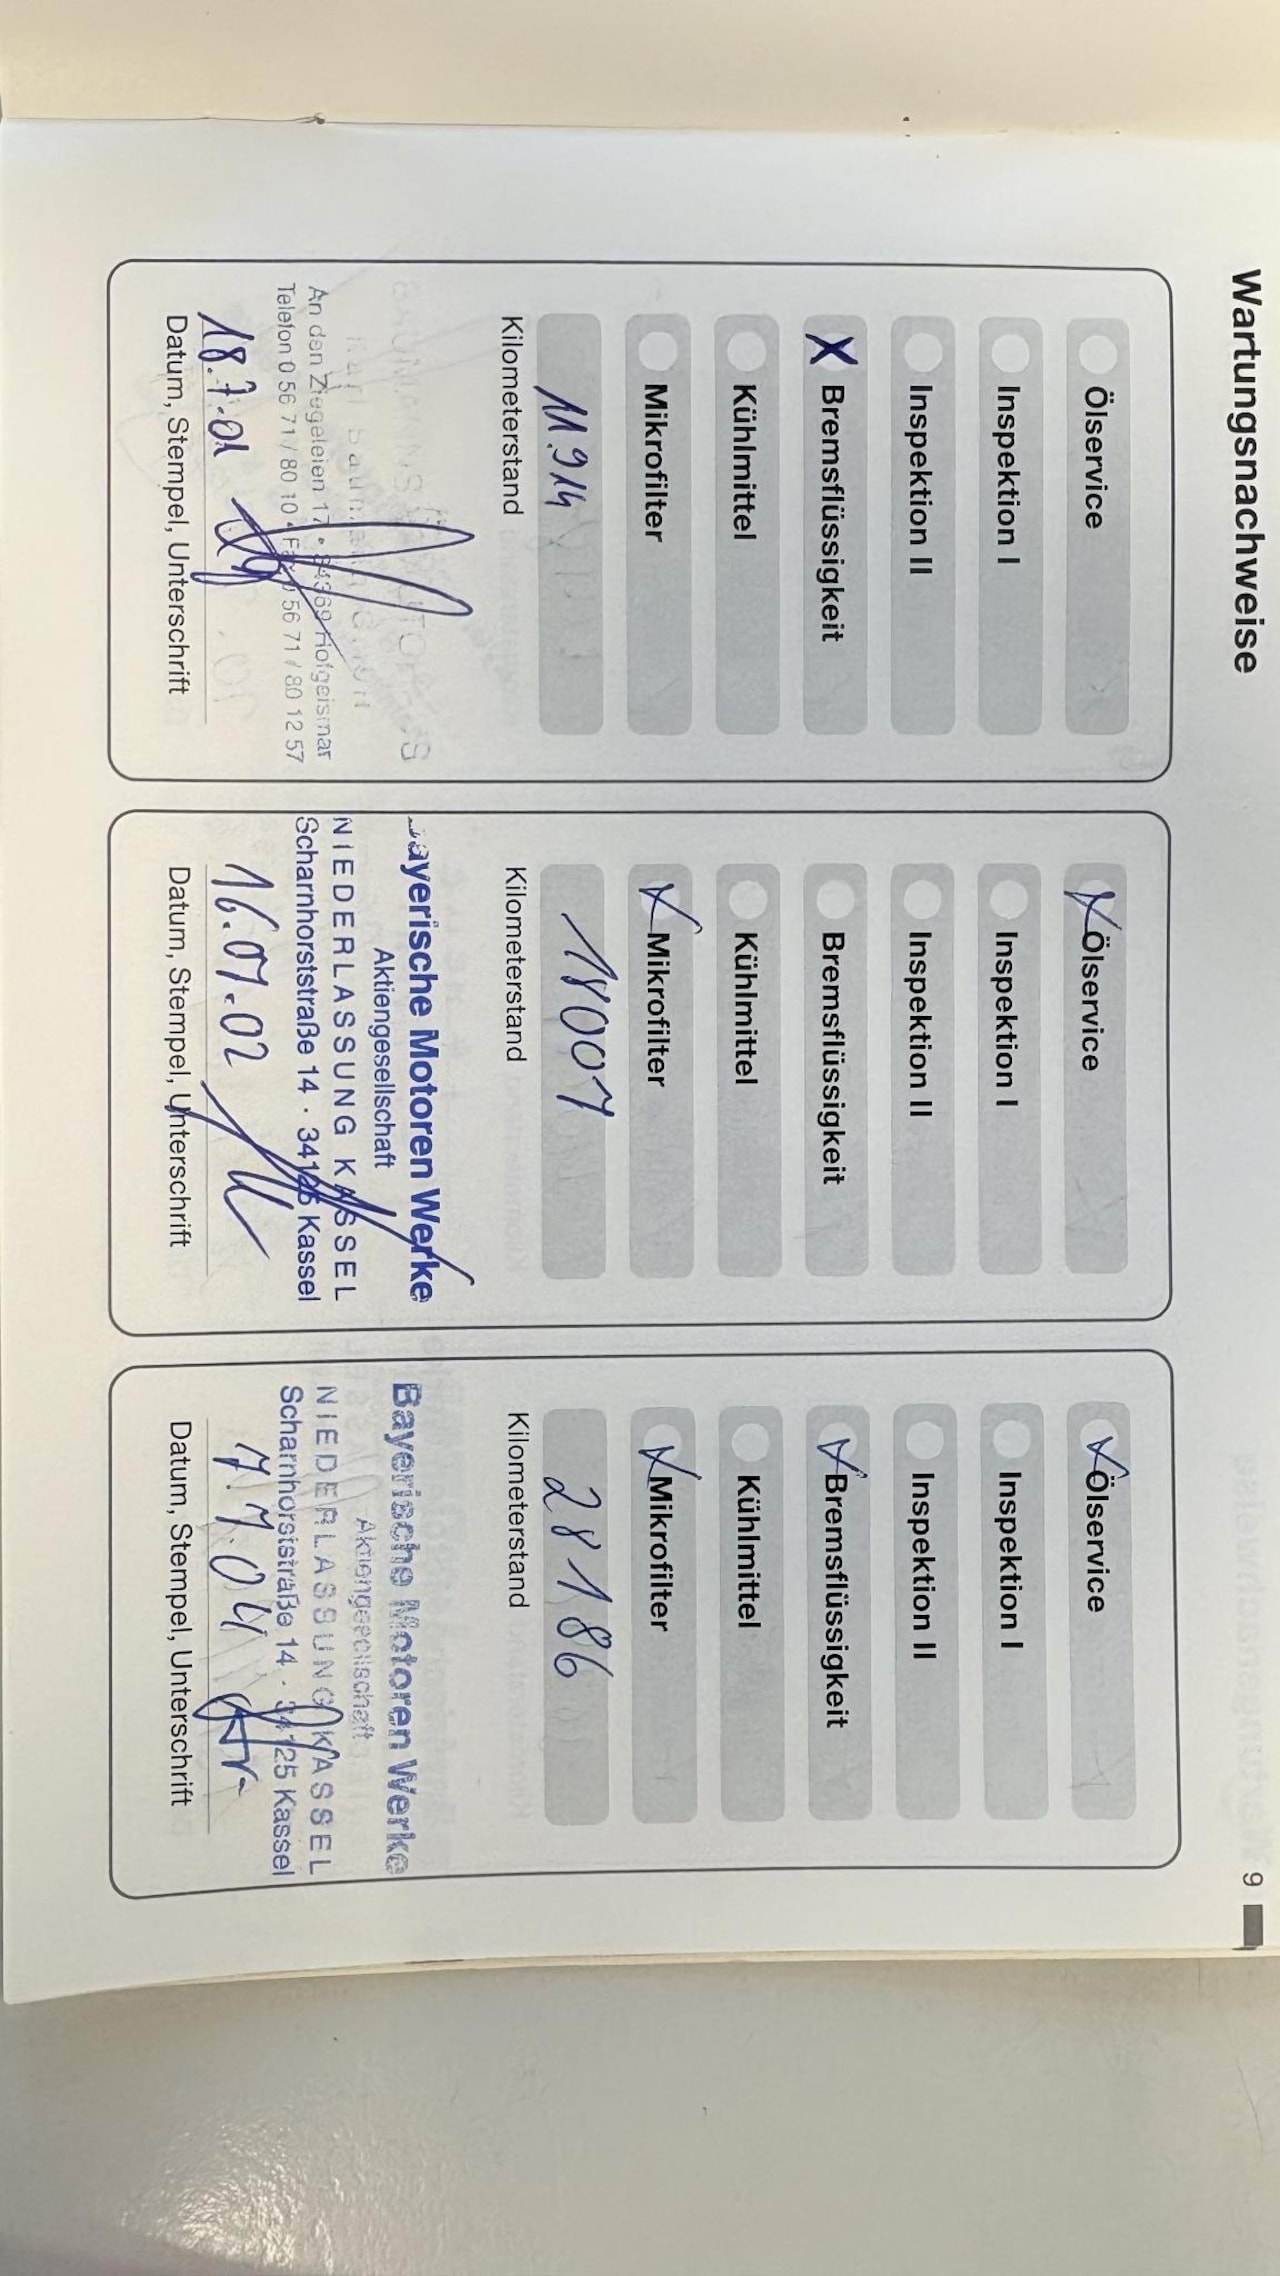 Wartungsnachweise
9
Ölservice
Inspektion I
Inspektion II
X Bremsflüssigkeit
Kühlmittel
Mikrofilter
11.914
Kilometerstand
An den Ziegeleien 17 • 34369 Hofgeismar
Telefon 0 56 71 / 80 10 • Fax 0 56 71 / 80 12 57
18.7.01
Datum, Stempel, Unterschrift
X Ölservice
Inspektion I
Inspektion II
Bremsflüssigkeit
Kühlmittel
X Mikrofilter
18001
Kilometerstand
Bayerische Motoren Werke
Aktiengesellschaft
NIEDERLASSUNG KASSEL
Scharnhorststraße 14 · 34125 Kassel
16.01.02
Datum, Stempel, Unterschrift
X Ölservice
Inspektion I
Inspektion II
X Bremsflüssigkeit
Kühlmittel
X Mikrofilter
28186
Kilometerstand
Bayerische Motoren Werke
Aktiengesellschaft
NIEDERLASSUNG KASSEL
Scharnhorststraße 14 · 34125 Kassel
7.7.04
Datum, Stempel, Unterschrift